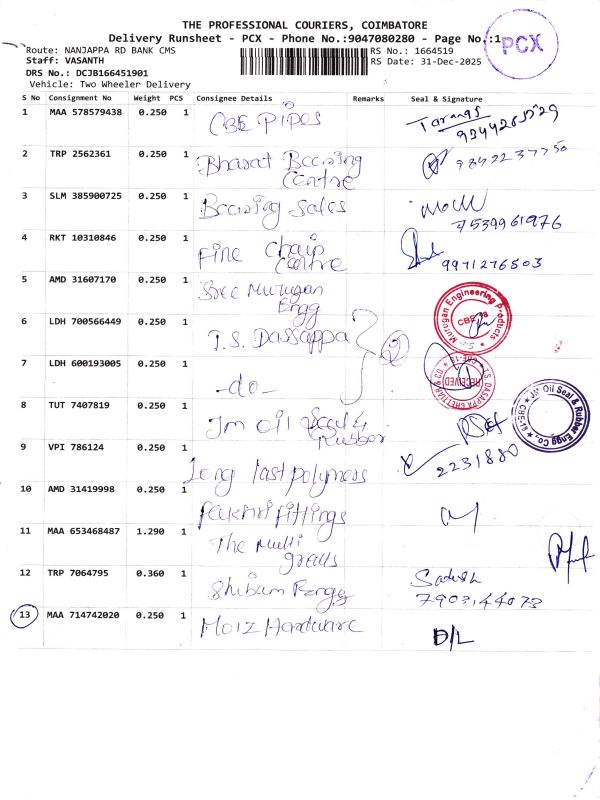 THE PROFESSIONAL COURIERS, COIMBATORE
Delivery Runsheet - PCX - Phone No.:9047080280 - Page No.:1
PCX
Route: NANJAPPA RD BANK CMS
RS No.: 1664519
Staff: VASANTH
RS Date: 31-Dec-2025
DRS No.: DCJB166451901
Vehicle: Two Wheeler Delivery
S No Consignment No Weight PCS Consignee Details Remarks Seal & Signature
1 MAA 578579438 0.250 1 CBE Pipes
2 TRP 2562361 0.250 1 Bharat Bearing
Centre
9842237750
3 SLM 385900725 0.250 1 Bearing Sales
7539961976
4 RKT 10310846 0.250 1 Fine Chain
Centre
9971276503
5 AMD 31607170 0.250 1 Sree Murugan
Engg
Murugan Engineering Products
6 LDH 700566449 0.250 1 T.S. Dassappa
2
7 LDH 600193005 0.250 1 -do-
T.S. DASAPPA CHETTIAR & CO.
RECEIVED
8 TUT 7407819 0.250 1 Jm Oil Seal &
Rubber
JM Oil Seal & Rubber Engg Co.,
9 VPI 786124 0.250 1 Long last polymers
2231880
10 AMD 31419998 0.250 1 fittings
11 MAA 653468487 1.290 1 The Multi
12 TRP 7064795 0.360 1 Shibam Engg
Satish
13 MAA 714742020 0.250 1 Moiz Hardware
D/L